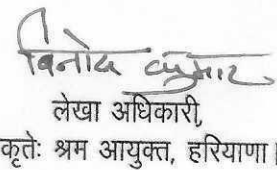 विनोद कुमार
लेखा अधिकारी,
कृतेः श्रम आयुक्त, हरियाणा।